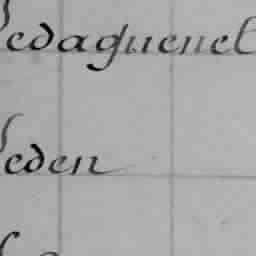 Sedaguenel
Seden